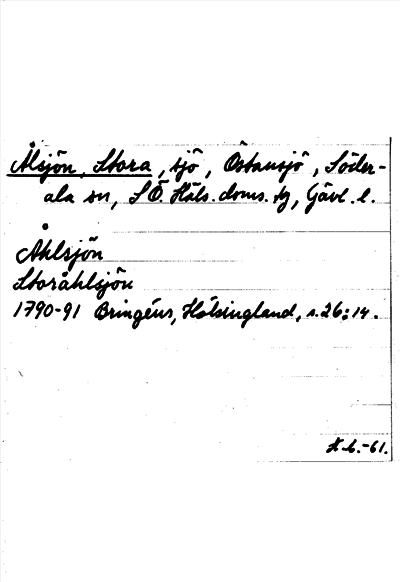 Ålsjön, Stora, sjö, Östansjö, Söder-
ala sn, SÖ. Häls. doms. tg, Gävl. l.
Åhlsjön
Storåhlsjön
1790-91 Bringéus, Hälsingland, s. 26:14.
H.b.-61.